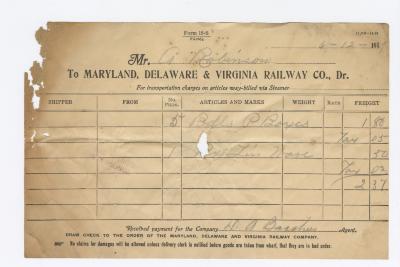 Form 18-S
4-12-191
Mr. A Robinson
To MARYLAND, DELAWARE & VIRGINIA RAILWAY CO., Dr.
For transportation charges on articles way-billed via Steamer
SHIPPER FROM No. Pkgs. ARTICLES AND MARKS WEIGHT RATE FREIGHT
5 Bdls P Boxes 1 80
Tax 05
1 Tin Ware 50
Tax 02
2 37
Received payment for the Company H. A. Agent.
DRAW CHECK TO THE ORDER OF THE MARYLAND, DELAWARE AND VIRGINIA RAILWAY COMPANY.
No claims for damages will be allowed unless delivery clerk is notified before goods are taken from wharf, that they are in bad order.